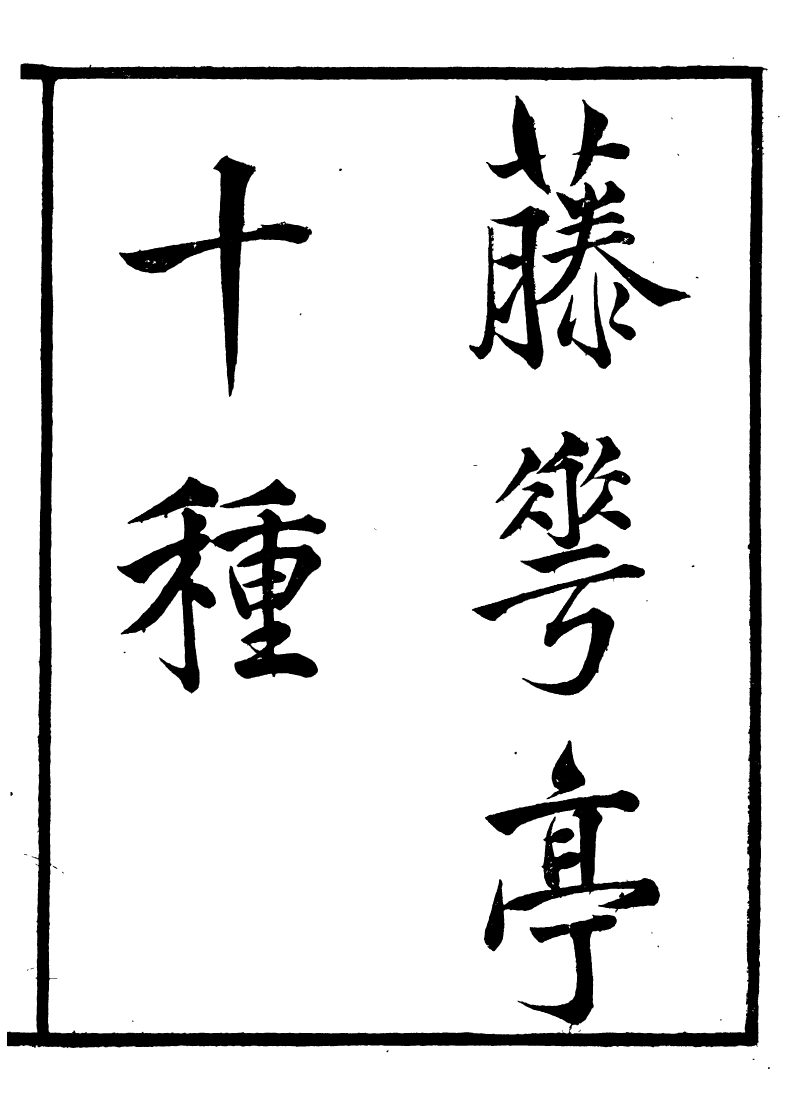 藤花亭
十種